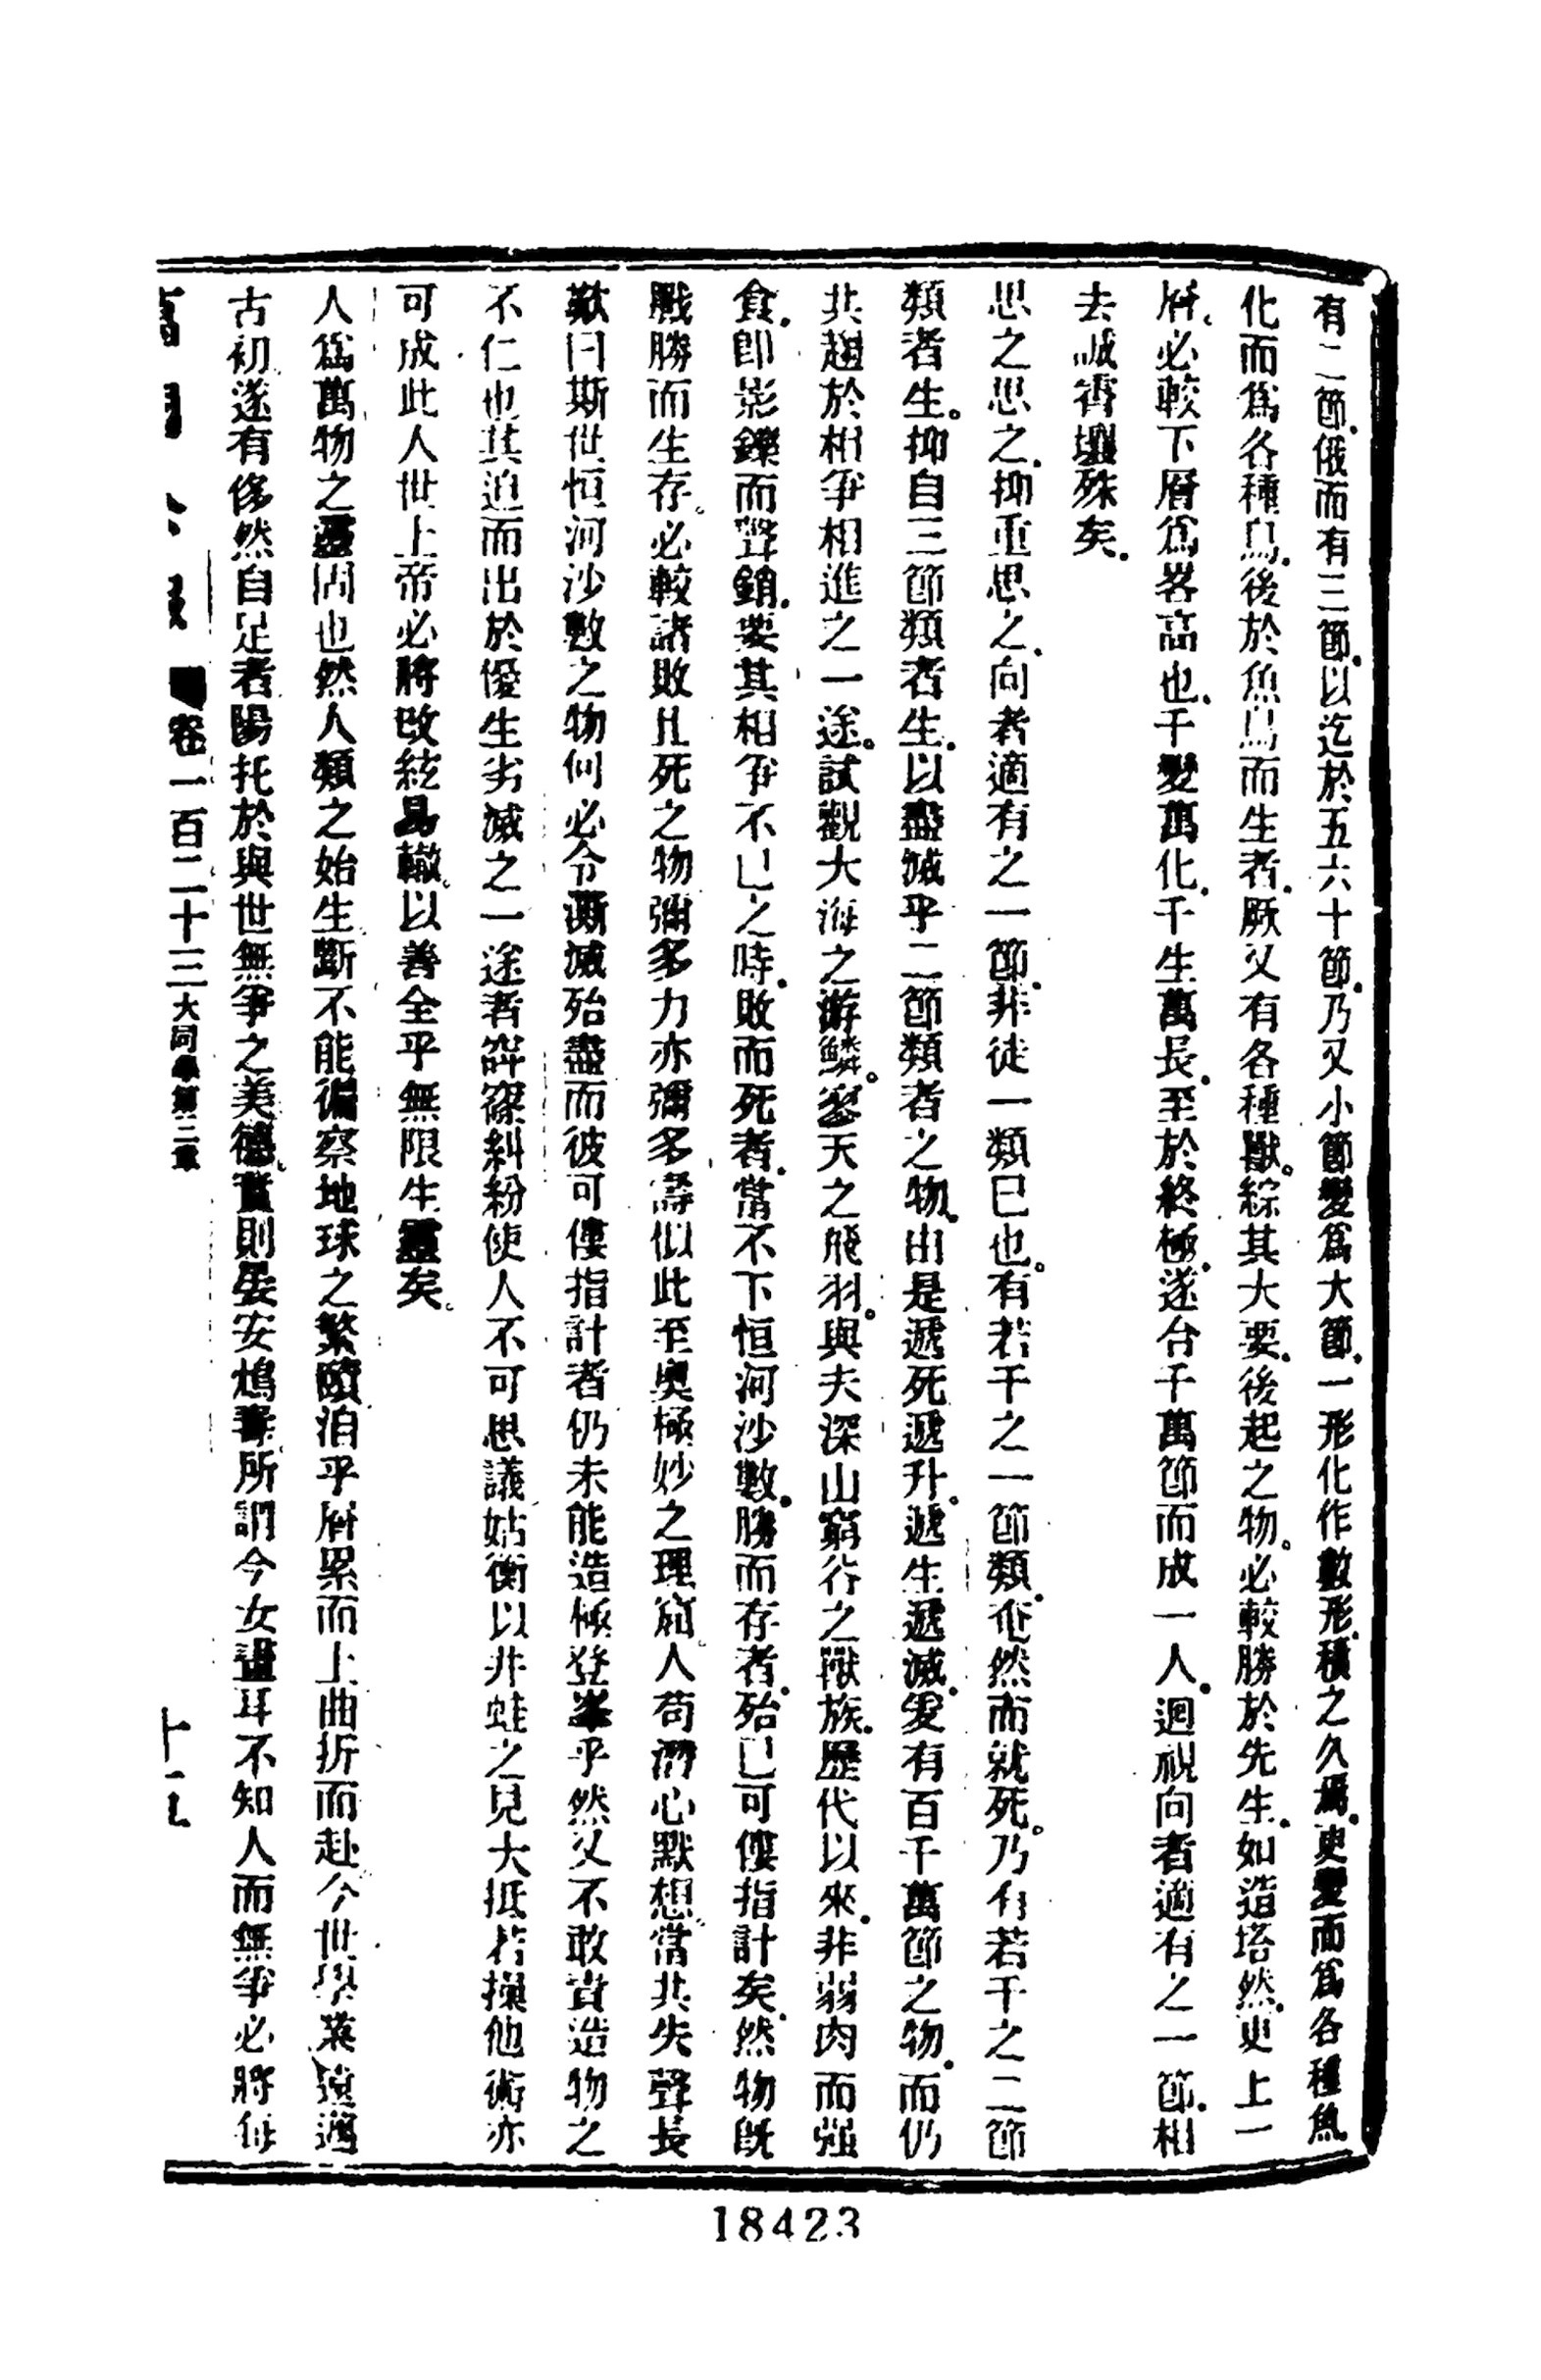 有二節俄而有三節以迄於五六十節乃又小節變爲大節一形化作數形積之久焉更變而爲各種魚
化而爲各種鳥後於魚鳥而生者厥又有各種獸綜其大要後起之物必較勝於先生如造塔然更上一
層必較下層爲畧高也千變萬化千生萬長至於終極遂合千萬節而成一人迴視向者適有之一節相
去誠霄壤殊矣
思之思之抑重思之向者適有之一節非徒一類已也有若干之一節類奄然而就死乃有若干之二節
類者生抑自三節類者生以盡滅乎二節類者之物由是遞死遞升遞生遞滅爰有百千萬節之物而仍
共趨於相爭相進之一途試觀大海之游鱗寥天之飛羽與夫深山窮谷之獸族歷代以來非弱肉而强
食卽影鑠而聲銷要其相爭不已之時敗而死者當不下恒河沙數勝而存者殆已可僂指計矣然物旣
戰勝而生存必較諸敗且死之物彌多力亦彌多壽似此至奧極妙之理爲人苟潛心默想當共失聲長
歎曰斯世恒河沙數之物何必令澌滅殆盡而彼可僂指計者仍未能造極登峯乎然又不敢責造物之
不仁也其迫而出於優生劣滅之一途者縱糾紛使人不可思議姑衡以井蛙之見大抵若操他術亦
可成此人世上帝必將改絃易轍以善全乎無限生靈矣
人爲萬物之靈固也然人類之始生斷不能徧察地球之繁賾洎乎層累而上曲折而赴今世學業遠邁
古初遂有侈然自足者陽托於與世無爭之美德實則晏安鴆毒所謂今女畫耳不知人而無爭必將每
萬國公報 卷一百二十三 大同學第三章 十五
18423